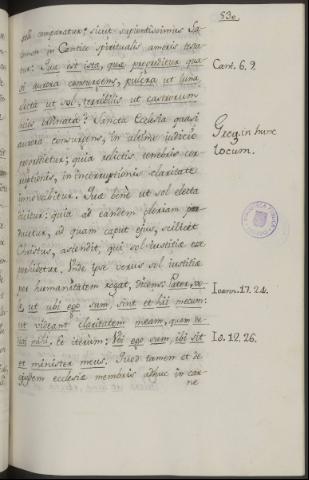 530
comparatur: sicut sapientissimus Sa-
in Cantico spiritualis amoris testa-
tur: Quæ est ista, quæ progreditur qua-
si aurora consurgens, pulcra ut luna,
electa ut sol, terribilis ut castrorum
acies ordinata? Sancta Ecclesia quasi
aurora consurgens, in ultimo iudicio
progredietur; quia relictis tenebris cor-
ruptionis, in incorruptionis claritate
innovabitur. Quæ bene ut sol electa
dicitur: quia ad eandem gloriam
ducitur, ad quam caput ejus, scilicet
Christus, ascendit, qui sol justitiæ esse
perhibetur. Unde ipse verus sol iustitiæ
per humanitatem rogat, dicens: Pater, vo-
lo, ut ubi ego sum, sint et hii mecum:
ut videant claritatem meam, quam de-
disti michi. Et iterum: Ubi ego sum, ibi sit
et minister meus. Quod tamen et de
ejusdem ecclesiæ membris adhuc in car-
ne
Cant. 6. 9.
Greg. in hunc
locum.
Ioann. 17. 24.
Io. 12. 26.